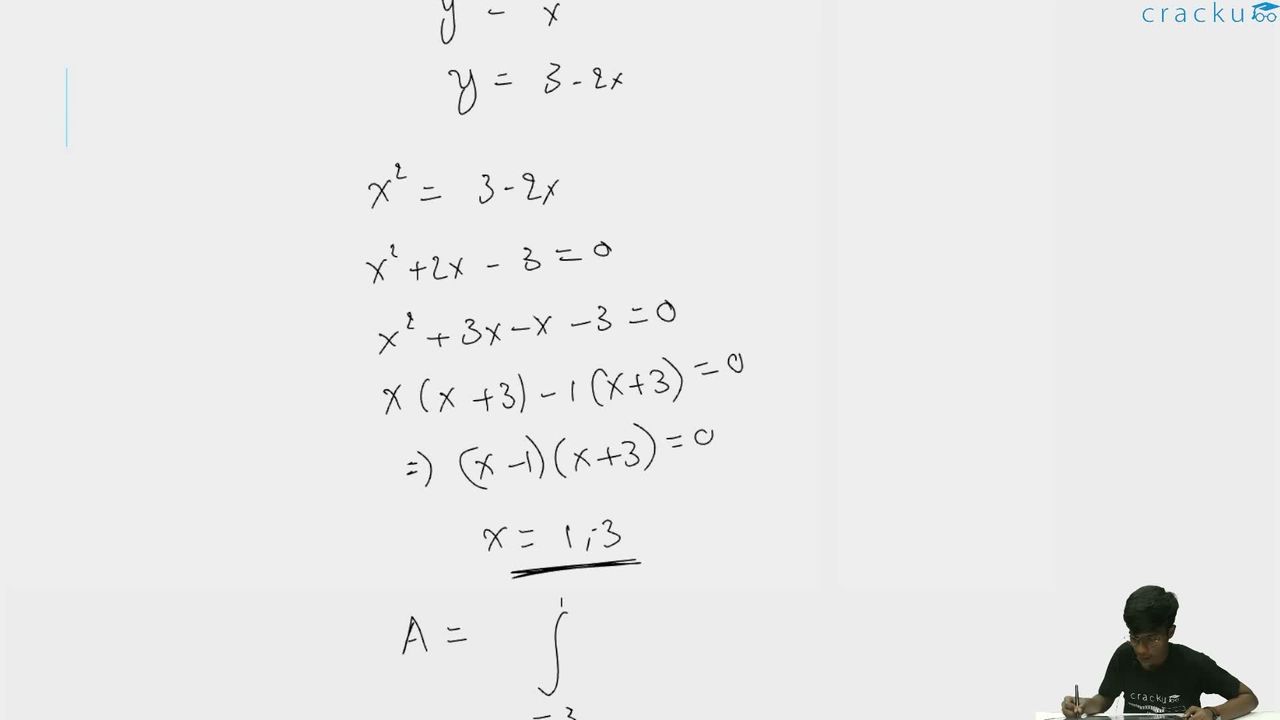 cracku
y = x
y = 3 - 2x
x² = 3 - 2x
x² + 2x - 3 = 0
x² + 3x - x - 3 = 0
x (x + 3) - 1 (x + 3) = 0
=) (x - 1) (x + 3) = 0
x = 1, -3
A = ∫₋₃¹
cracku